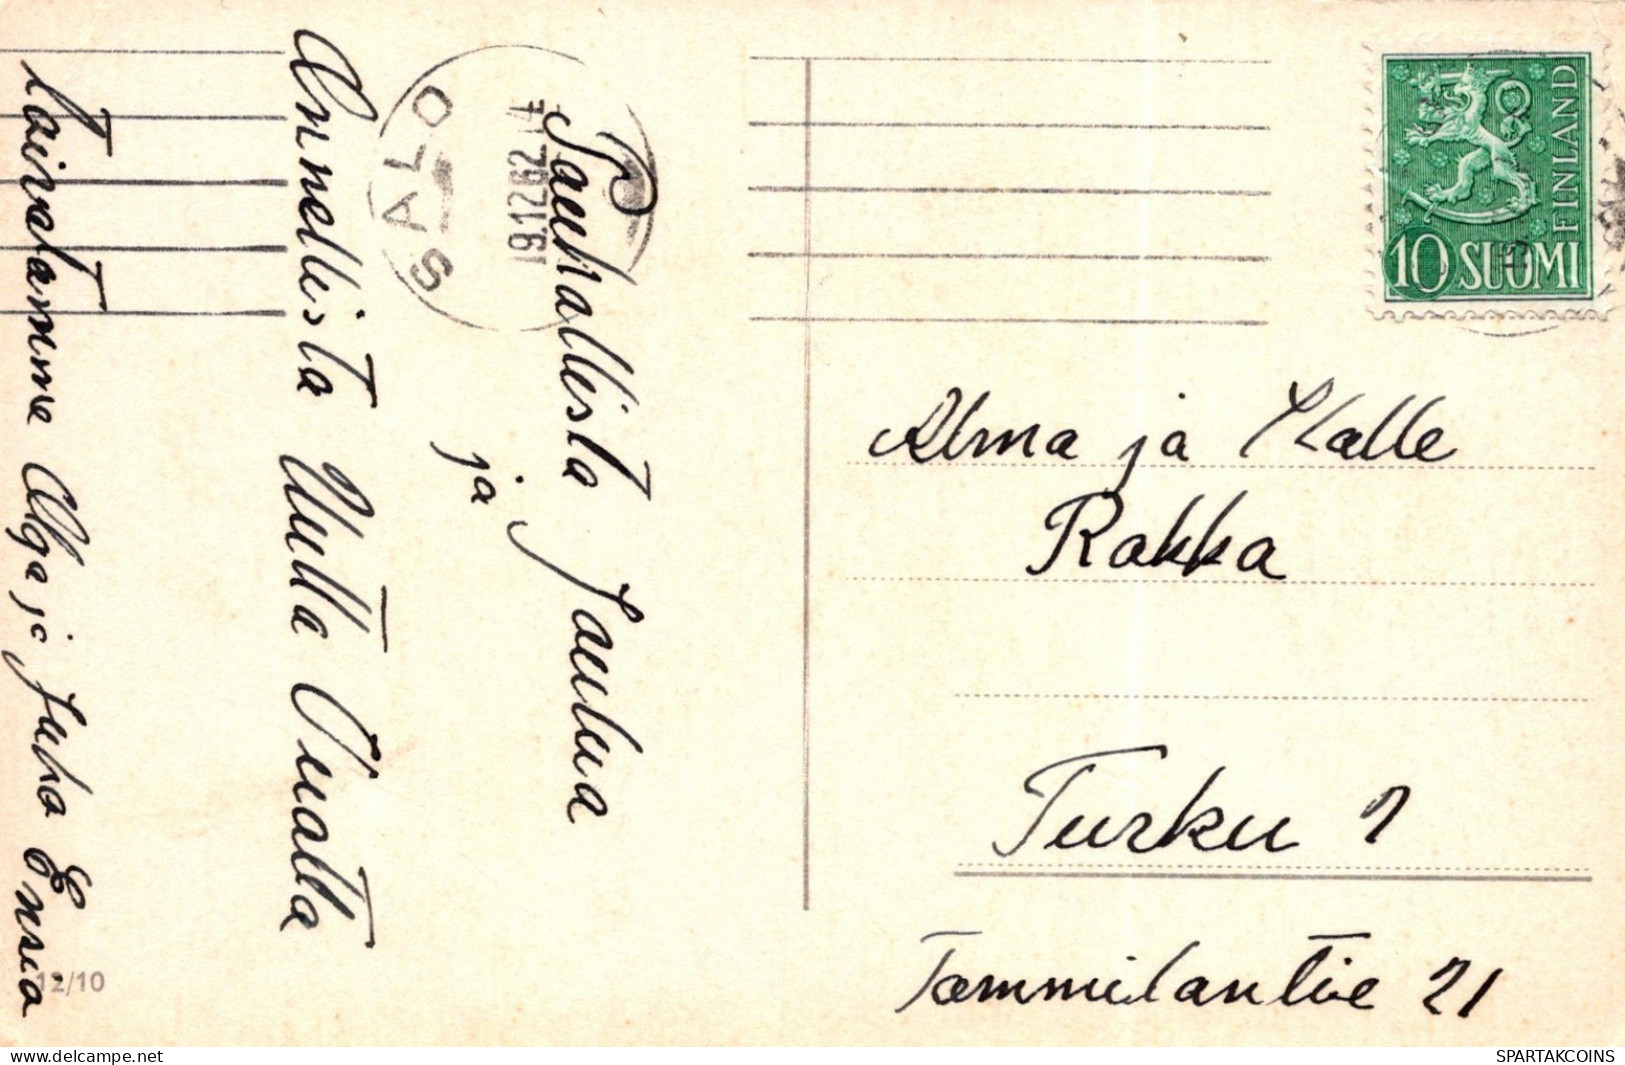 Rauhallista Joulua
ja
Onnellista Uutta Vuotta
Toivotamme Olga ja Juho Ensio
SALO
19.12.62.14
10 SUOMI
FINLAND
Alma ja Kalle
Rakka
Turku 1
Tammilantie 21
12/10
www.delcampe.net
SPARTAKCOINS